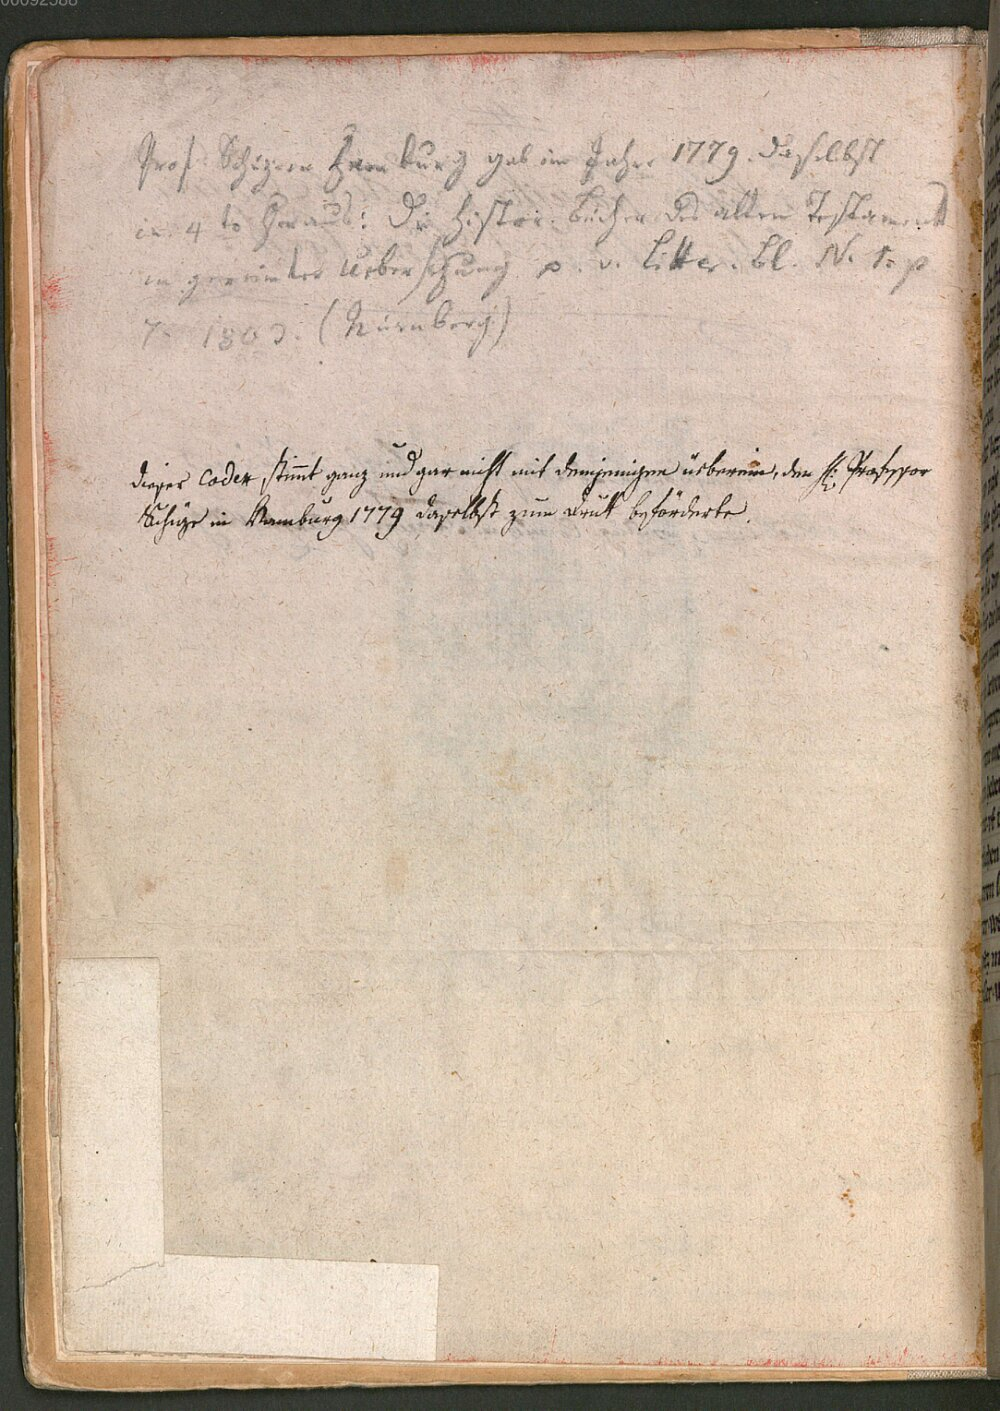 00092588
Prof. Schüze in Hamburg gab im Jahre 1779. daselbst
in 4to heraus: Die histor. Bücher des alten Testaments
in gereimter Uebersetzung v. Litter. Bl. N. 1. p
7. 1803. (Nürnberg.)
dieser Codex stimmt ganz und gar nicht mit demjenigen überein, den H. Professor
Schüze in Hamburg 1779 daselbst zum Druk beförderte.